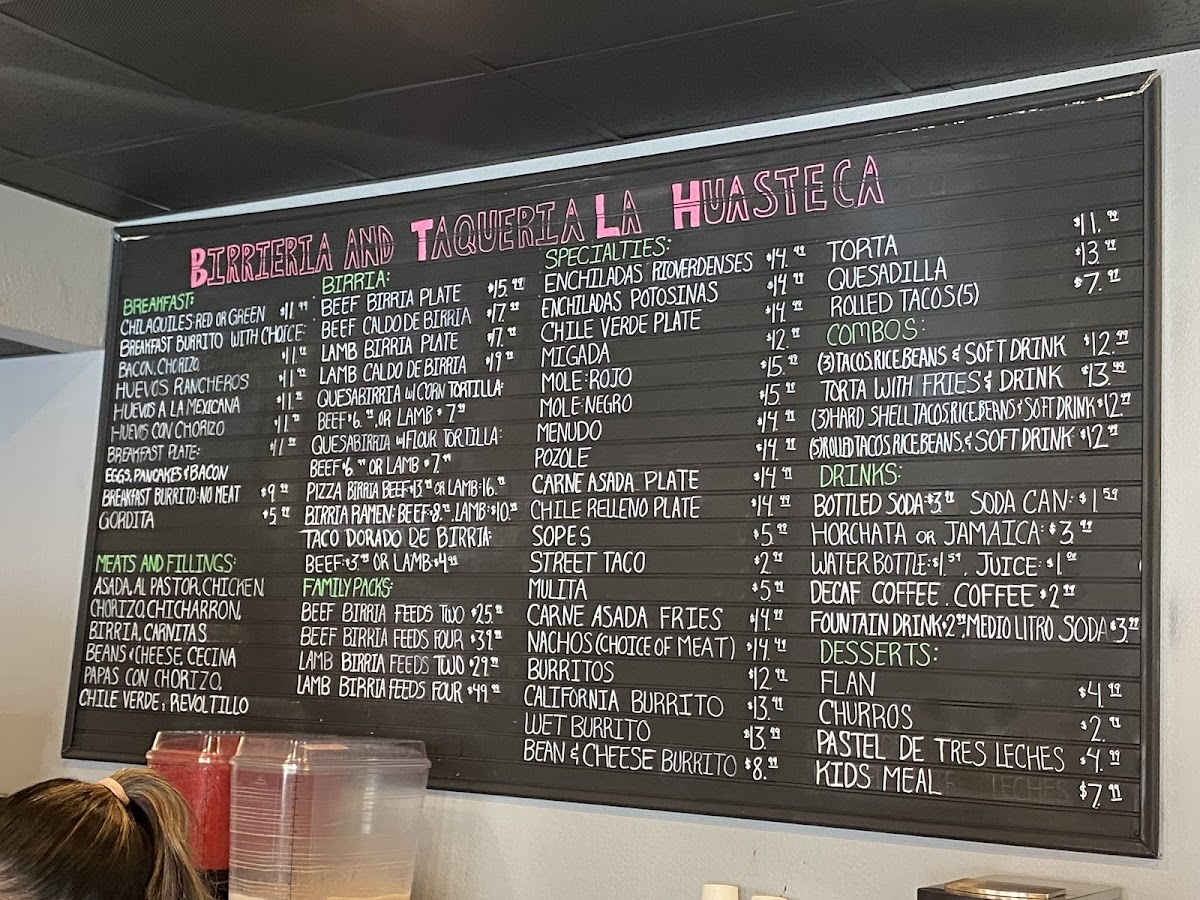 BIRRIERIA AND TAQUERIA LA HUASTECA
BREAKFAST:
CHILAQUILES: RED OR GREEN $11.99
BREAKFAST BURRITO WITH CHOICE:
BACON, CHORIZO $11.99
HUEVOS RANCHEROS $11.99
HUEVOS A LA MEXICANA $11.99
HUEVOS CON CHORIZO $11.99
BREAKFAST PLATE: $11.99
EGGS, PANCAKES & BACON
BREAKFAST BURRITO: NO MEAT $9.99
GORDITA $5.99
MEATS AND FILLINGS:
ASADA, AL PASTOR, CHICKEN,
CHORIZO, CHICHARRON,
BIRRIA, CARNITAS
BEANS & CHEESE, CECINA
PAPAS CON CHORIZO,
CHILE VERDE, REVOLTILLO
BIRRIA:
BEEF BIRRIA PLATE $15.99
BEEF CALDO DE BIRRIA $17.99
LAMB BIRRIA PLATE $17.99
LAMB CALDO DE BIRRIA $19.99
QUESABIRRIA W/ CORN TORTILLA:
BEEF $6.99 OR LAMB $7.99
QUESABIRRIA W/ FLOUR TORTILLA:
BEEF $6.99 OR LAMB $7.99
PIZZA BIRRIA BEEF $15.99 OR LAMB: 16.99
BIRRIA RAMEN: BEEF: $8.99, LAMB: $10.99
TACO DORADO DE BIRRIA:
BEEF: $3.99 OR LAMB: $4.99
FAMILY PACKS:
BEEF BIRRIA FEEDS TWO $25.99
BEEF BIRRIA FEEDS FOUR $39.99
LAMB BIRRIA FEEDS TWO $29.99
LAMB BIRRIA FEEDS FOUR $49.99
SPECIALTIES:
ENCHILADAS RIOVERDENSES $14.99
ENCHILADAS POTOSINAS $14.99
CHILE VERDE PLATE $14.99
MIGADA $12.99
MOLE: ROJO $15.99
MOLE: NEGRO $15.99
MENUDO $14.99
POZOLE $14.99
CARNE ASADA PLATE $14.99
CHILE RELLENO PLATE $14.99
SOPES $5.99
STREET TACO $2.99
MULITA $5.99
CARNE ASADA FRIES $14.99
NACHOS (CHOICE OF MEAT) $14.99
BURRITOS $12.99
CALIFORNIA BURRITO $13.99
WET BURRITO $13.99
BEAN & CHEESE BURRITO $8.99
TORTA $11.99
QUESADILLA $13.99
ROLLED TACOS (5) $7.99
COMBOS:
(3) TACOS, RICE, BEANS & SOFT DRINK $12.99
TORTA WITH FRIES & DRINK $13.99
(3) HARD SHELL TACOS, RICE, BEANS & SOFT DRINK $12.99
(5) ROLLED TACOS, RICE, BEANS, & SOFT DRINK $12.99
DRINKS:
BOTTLED SODA: $3.99 SODA CAN: $1.59
HORCHATA OR JAMAICA: $3.99
WATER BOTTLE: $1.59, JUICE: $1.00
DECAF COFFEE, COFFEE $2.99
FOUNTAIN DRINK $2.99, MEDIO LITRO SODA $3.99
DESSERTS:
FLAN $4.99
CHURROS $2.99
PASTEL DE TRES LECHES $4.99
KIDS MEAL $7.99